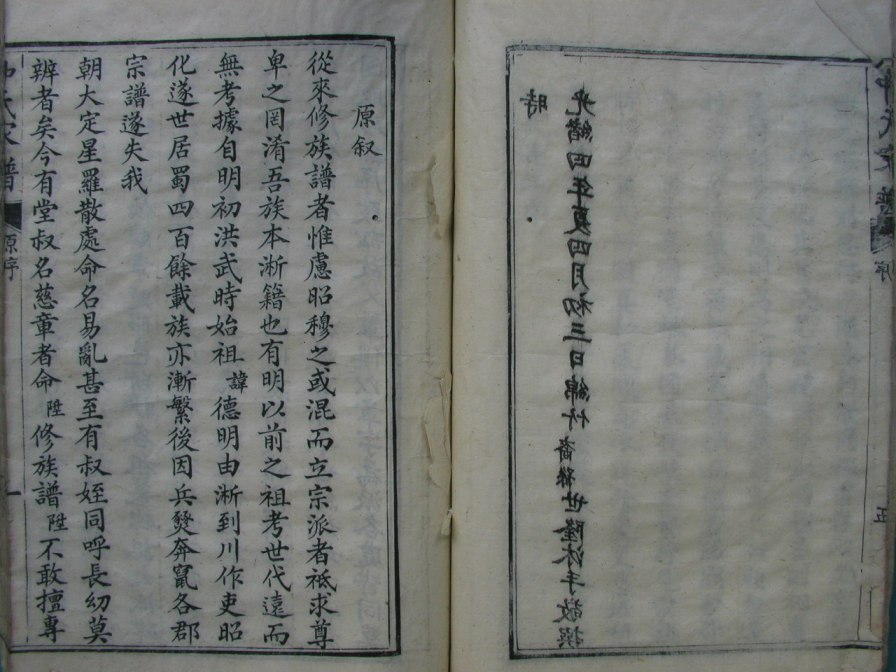 時
光緒四年夏四月初三日綿竹裔孫世隆沐手敬撰
原叙
從來修族譜者惟慮昭穆之或混而立宗派者祗求尊
卑之罔淆吾族本淅籍也有明以前之祖考世代遠而
無考據自明初洪武時始祖諱德明由淅到川作吏昭
化遂世居蜀四百餘載族亦漸繁後因兵燹奔竄各郡
宗譜遂失我
朝大定星羅散處命名易亂甚至有叔姪同呼長幼莫
辨者矣今有堂叔名慈童者命陞修族譜陞不敢擅專
氏家譜
原序
一